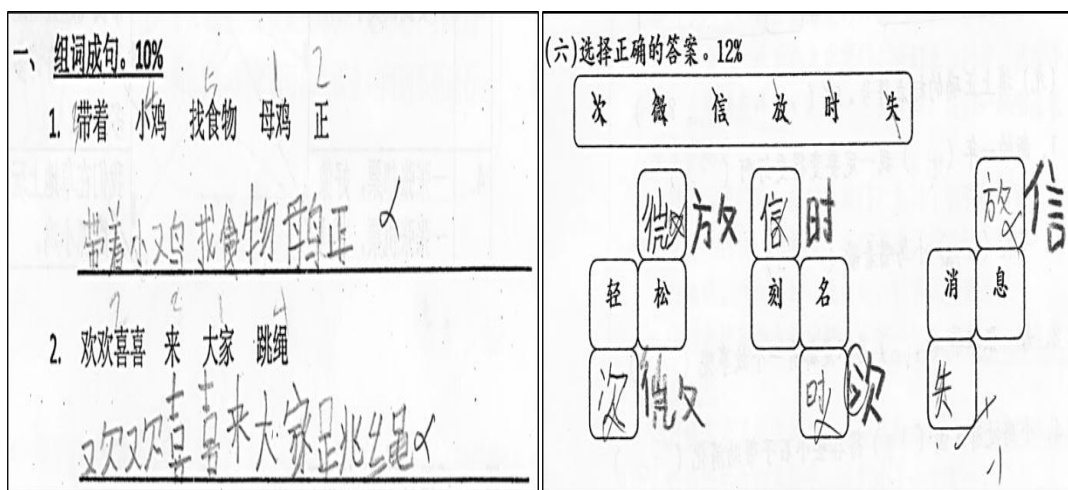 一、组词成句。10%
5 1 2
1. 带着 小鸡 找食物 母鸡 正
带着小鸡找食物母鸡正
2. 欢欢喜喜 来 大家 跳绳
欢欢喜喜来大家跳绳
(六)选择正确的答案。12%
次 微 信 放 时 失
微 放 信 时 放 信
轻 松 刻 名 消 息
次 微 时 欢 失